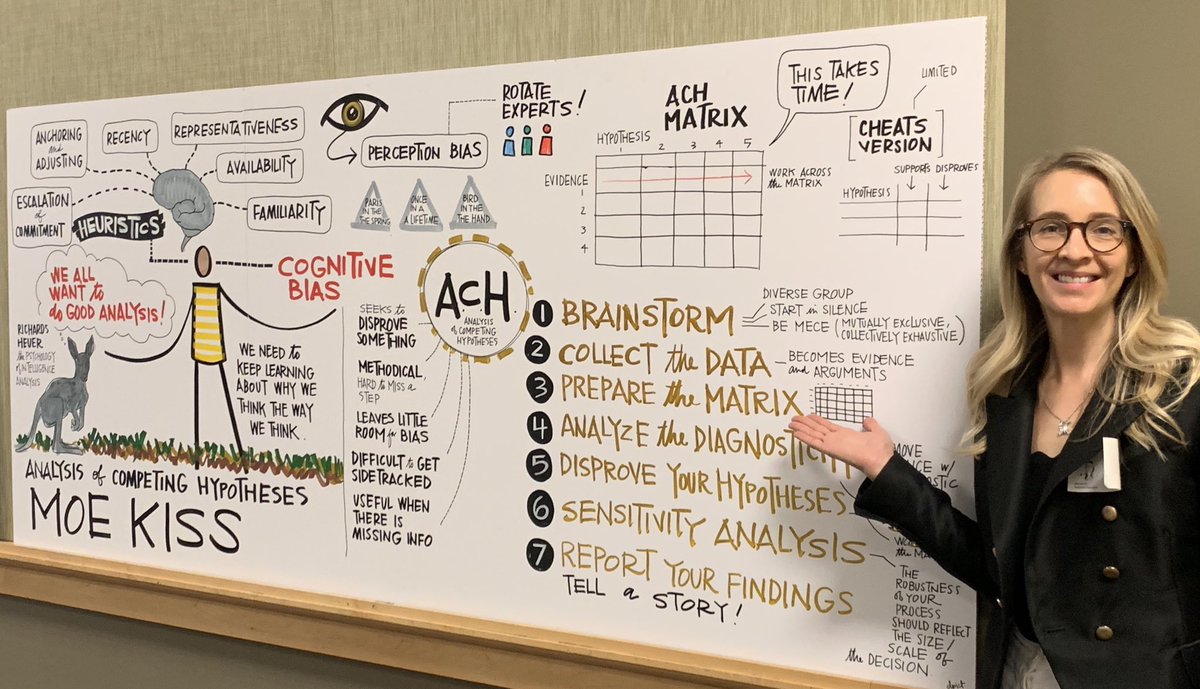 ANCHORING
and
ADJUSTING
RECENCY
REPRESENTATIVENESS
AVAILABILITY
FAMILIARITY
ESCALATION
of
COMMITMENT
HEURISTICS
WE ALL
WANT to
do GOOD ANALYSIS!
COGNITIVE
BIAS
RICHARDS
HEUER
the PSYCHOLOGY
of INTELLIGENCE
ANALYSIS
WE NEED to
KEEP LEARNING
ABOUT WHY WE
THINK THE WAY
WE THINK.
ANALYSIS of COMPETING HYPOTHESES
MOE KISS
PERCEPTION BIAS
ROTATE
EXPERTS!
PARIS
IN THE
THE SPRING
ONCE
IN A
A LIFETIME
BIRD
IN THE
THE HAND
A.C.H.
ANALYSIS
of COMPETING
HYPOTHESES
SEEKS to
DISPROVE
SOMETHING
METHODICAL,
HARD to MISS a
STEP
LEAVES LITTLE
ROOM for BIAS
DIFFICULT to GET
SIDETRACKED
USEFUL WHEN
THERE IS
MISSING INFO
ACH
MATRIX
HYPOTHESIS
1 2 3 4 5
EVIDENCE
1
2
3
4
WORK ACROSS
the MATRIX
THIS TAKES
TIME!
LIMITED
[CHEATS
VERSION]
SUPPORTS DISPROVES
HYPOTHESIS
1 BRAINSTORM
DIVERSE GROUP
START in SILENCE
BE MECE (MUTUALLY EXCLUSIVE,
COLLECTIVELY EXHAUSTIVE)
2 COLLECT the DATA
BECOMES EVIDENCE
and ARGUMENTS
3 PREPARE the MATRIX
4 ANALYZE the
5 DISPROVE YOUR HYPOTHESES
6 SENSITIVITY ANALYSIS
7 REPORT YOUR FINDINGS
TELL a STORY!
THE
ROBUSTNESS
of YOUR
PROCESS
SHOULD REFLECT
THE SIZE/
SCALE of
the DECISION